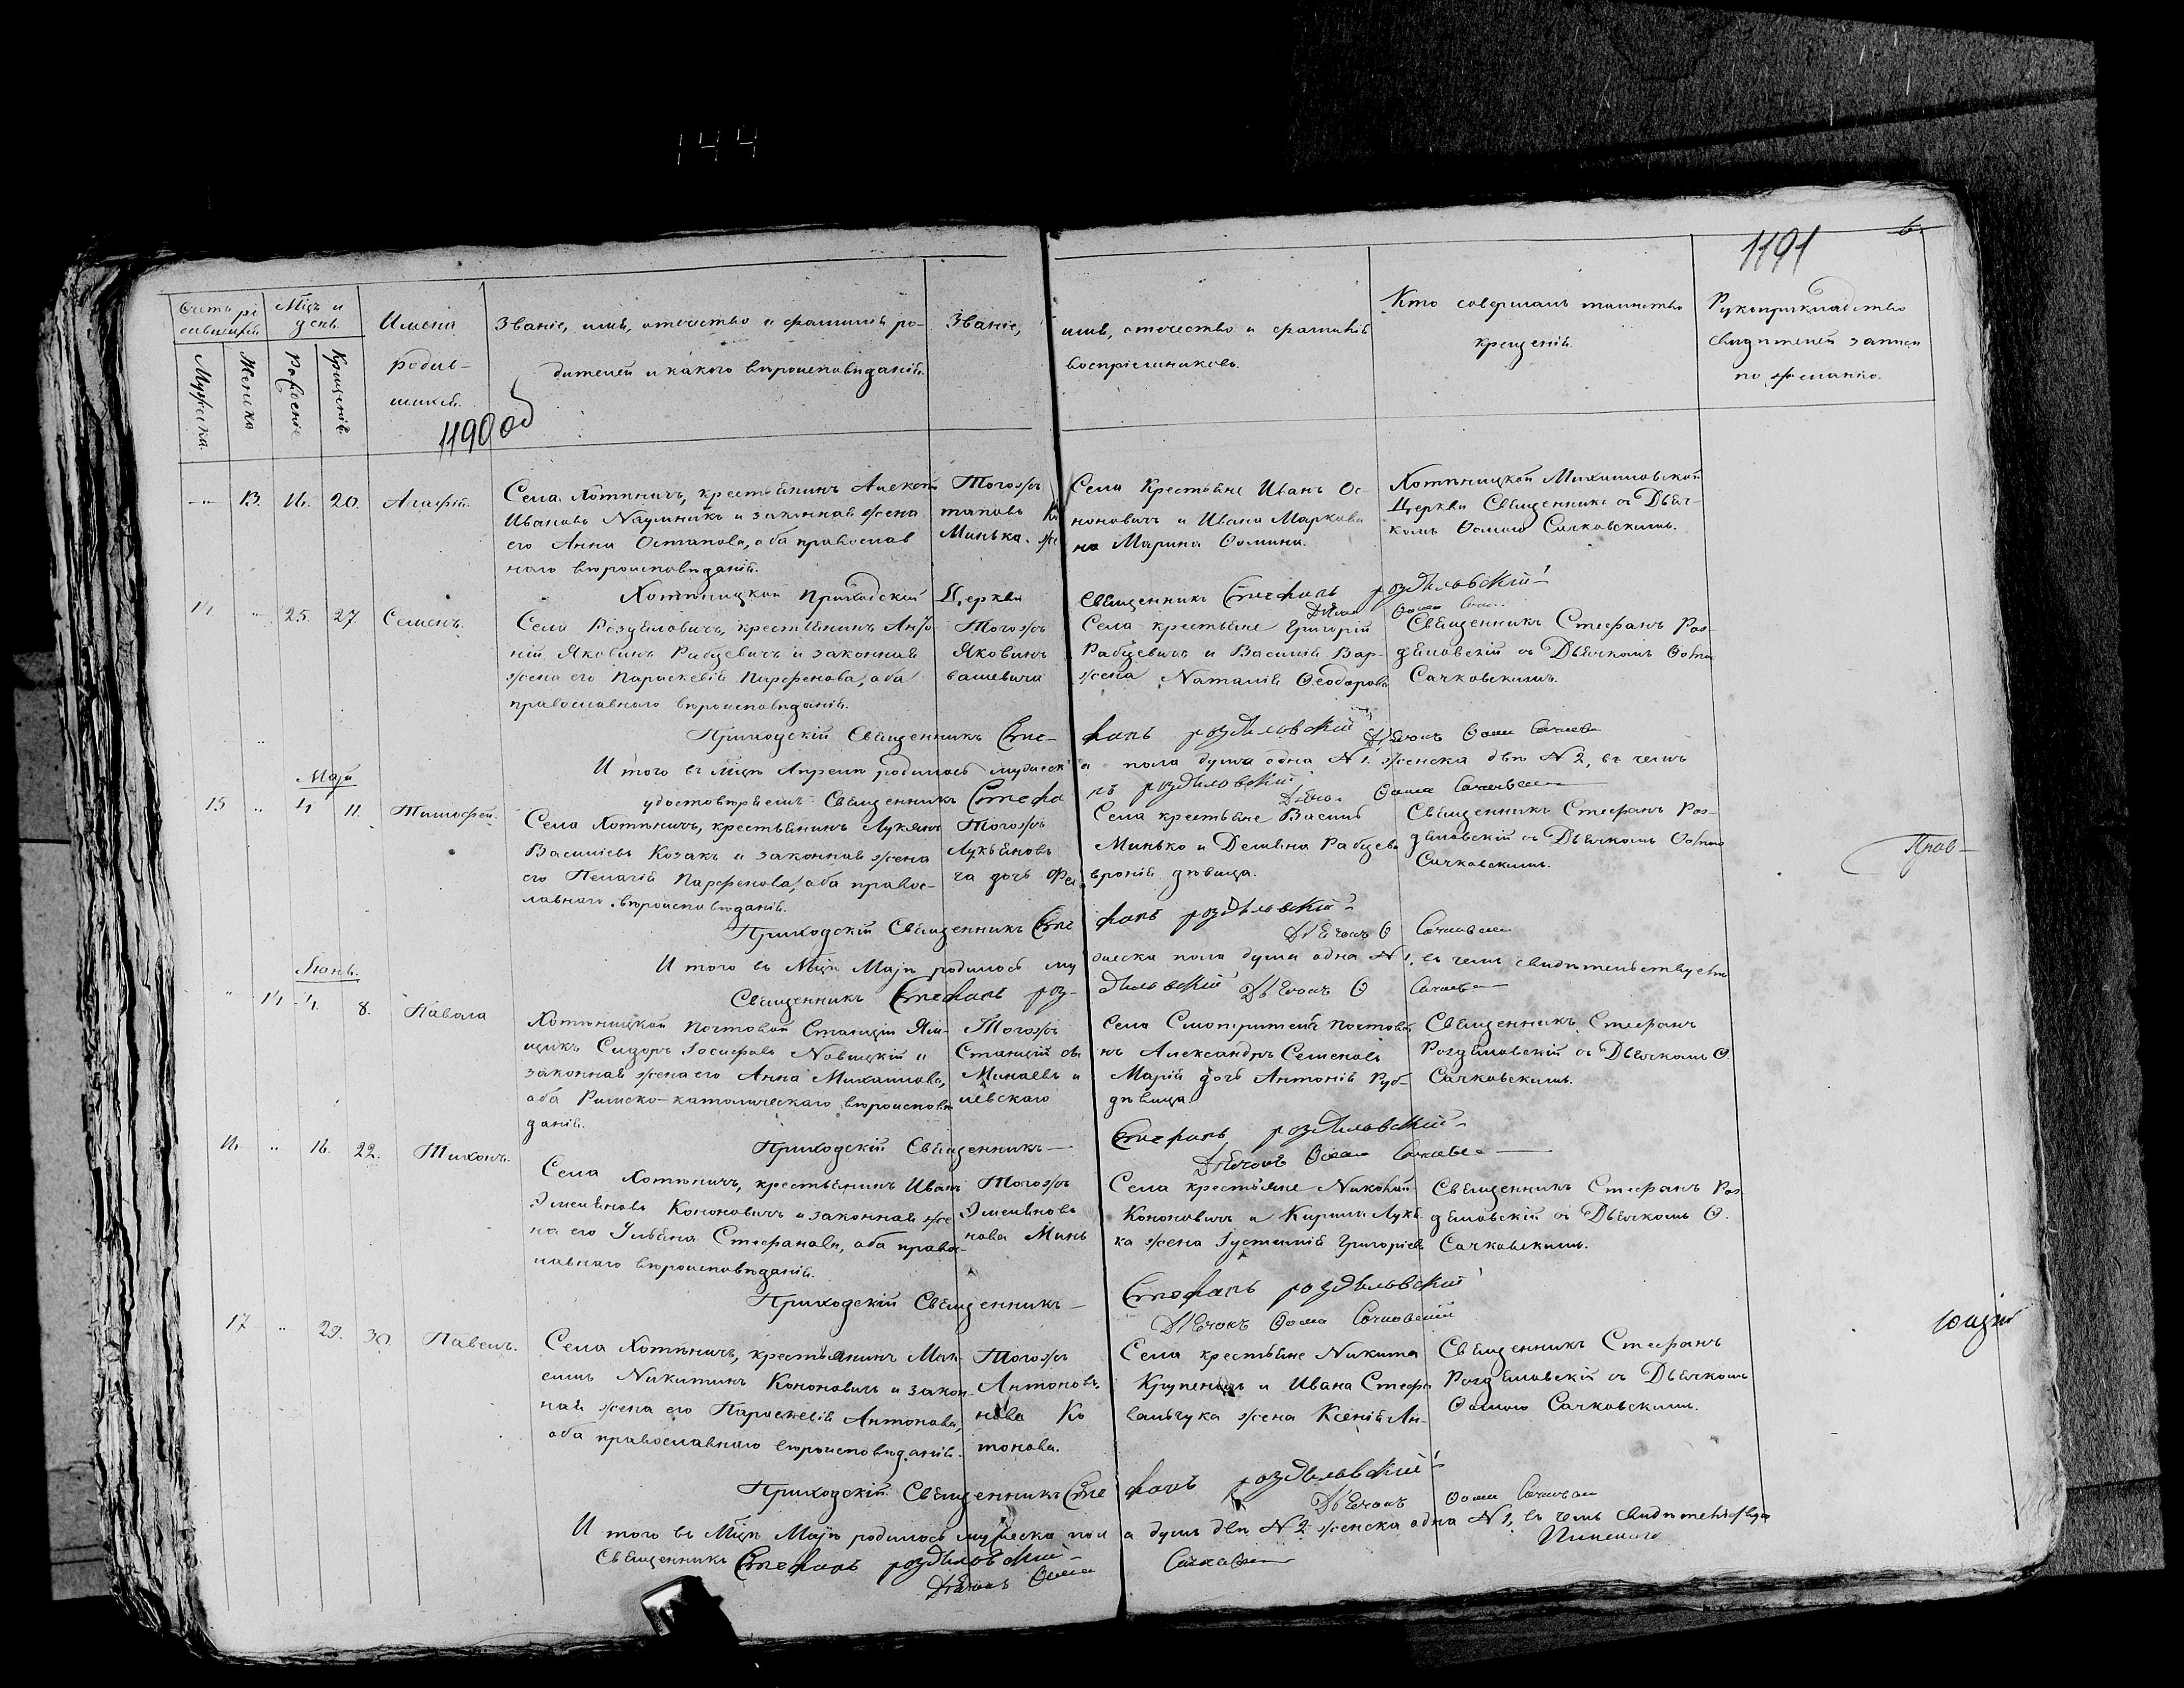 144
1191
6.
Мцъ и
день.
Имена
родив-
шихся.
Званіе, имя, отечество и фамилія ро-
дителей и какого вѣроисповѣданія.
Званіе,
имя, отечество и фамилія
воспріемниковъ.
Кто совершалъ таинство
крещенія.
Рукоприкладство
свидѣтелей записи
по желанію.
Мужеска.
Женска
Рожденіе
Крещенія.
1190 об
13. 16. 20. Агафія.
Села Хотыничъ, крестьянинъ Алексѣй
Ивановъ Наумчикъ и законная жена
его Анна Остапова, оба православ
наго вѣроисповѣданія.
Тогожъ
таповъ Ко
Минька. же
Села Крестьяне Иванъ Ос-
ноновичъ и Ивана Маркова
на Марина Ѳомина.
Хотыницкой Михаиловской
Церкви Священникъ съ Дьяч-
комъ Ѳомою Сачковскимъ.
Хотыницкой Приходской Церкви
Священникъ Стефанъ роздяловскій
14 " 25. 27 Семенъ.
Села Роздяловичъ, крестьянинъ
Яковинъ Рабцевичъ и законная
жена его Параскевія Парфенова, оба
православнаго вѣроисповѣданія.
Тогожъ
Яковинъ
вашевича
Села крестьяне Григорій
Рабцевичъ и Василія Вар-
жена Наталія Ѳеодорова
Священникъ Стефанъ Роз-
дяловскій съ Дьячкомъ Ѳомою
Сачковскимъ.
Приходскій Священникъ Сте-
фанъ роздяловскій
И того въ мцѣ Апрелѣ родилось мужеск
а пола душа одна N 1. женска двѣ N 2, въ чемъ
удостовѣряемъ Священникъ Стефа
нъ роздяловскій
Маја
15 " 4 11. Тимофей.
Села Хотыничъ, крестьянинъ Лукянъ
Василіевъ Козакъ и законная жена
его Пелагія Парфенова, оба правос-
лавнаго вѣроисповѣданія.
Тогожъ
Лукьяновъ
ча дочь Фев
Села крестьяне Василь
Минько и Демьяна Рабцеви
вронія дѣвица.
Священникъ Стефанъ Роз-
дяловскій съ Дьячкомъ Ѳомою
Сачковскимъ.
Прав-
Приходскій Священникъ Сте
фанъ роздяловскій
И того въ Мцѣ Маја родилось му
жеска пола душа одна N 1. въ чемъ свидѣтельствуемъ
Священникъ Стефанъ роз-
дяловскій Дьячокъ Ѳ
Іюнь.
" 14 4. 8. Павола
Хотыницкой Почтовой Станціи Ям-
щикъ Сидоръ Іосифовъ Новицкій и
законная жена его Анна Михаилова,
оба Римско-католическаго вѣроисповѣ
данія.
Тогожъ
Станціи
Минаевъ и
левскаго
Села Смотритель Почтовой
нъ Александръ Семеновъ
Марія дочь Антонія Руб-
дѣвица.
Священникъ Стефанъ
Роздяловскій съ Дьячкомъ Ѳ.
Сачковскимъ.
Приходскій Священникъ
Стефанъ роздяловскій
16 " 16. 22. Тихонъ.
Села Хотыничъ, крестьянинъ Иванъ
Эмельяновъ Кононовичъ и законная же
на его Ульяна Стефанова, оба право-
славнаго вѣроисповѣданія.
Тогожъ
Эмельяновъ
нова Минь
Села крестьяне Николай
Кононовичъ и Кирила Лукь
ка жена Іустинія Григоріева
Священникъ Стефанъ Роз
дяловскій съ Дьячкомъ Ѳ.
Сачковскимъ.
Приходскій Священникъ
Стефанъ роздяловскій
Дьячокъ Ѳома Сачковскій
17 " 29. 30. Павелъ.
Села Хотыничъ, крестьянинъ Мак-
симъ Никитинъ Кононовичъ и закон-
ная жена его Параскевія Антонова,
оба православнаго вѣроисповѣданія.
Тогожъ
Антоновъ.
нова Ко
тонова.
Села крестьяне Никита
Крупеничъ и Ивана Стефа
вальчука жена Ксенія Ан-
Священникъ Стефанъ
Роздяловскій съ Дьячкомъ
Ѳомою Сачковскимъ.
Приходскій Священникъ Сте
фанъ роздяловскій
И того въ Мцѣ Маја родилось мужеска пол
а душъ двѣ N 2 женска одна N 1, въ чемъ свидѣтельствуемъ
Священникъ Стефанъ роздяловскій
Дьячокъ Ѳома
Пинскаго